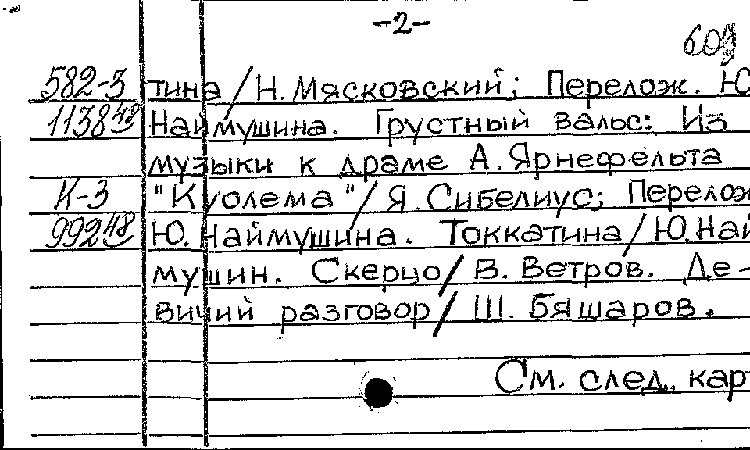 -2-
609
582-3 тина/Н. Мясковский; Перелож. Ю
1138 48 Наймушина. Грустный вальс: Из
музыки к драме А. Ярнефельта
К-3 "Куолема"/Я. Сибелиус; Перелож
992 48 Ю. Наймушина. Токкатина/Ю. Най
мушин. Скерцо/В. Ветров. Де-
вичий разговор/Ш. Бяшаров.
См. след. карт